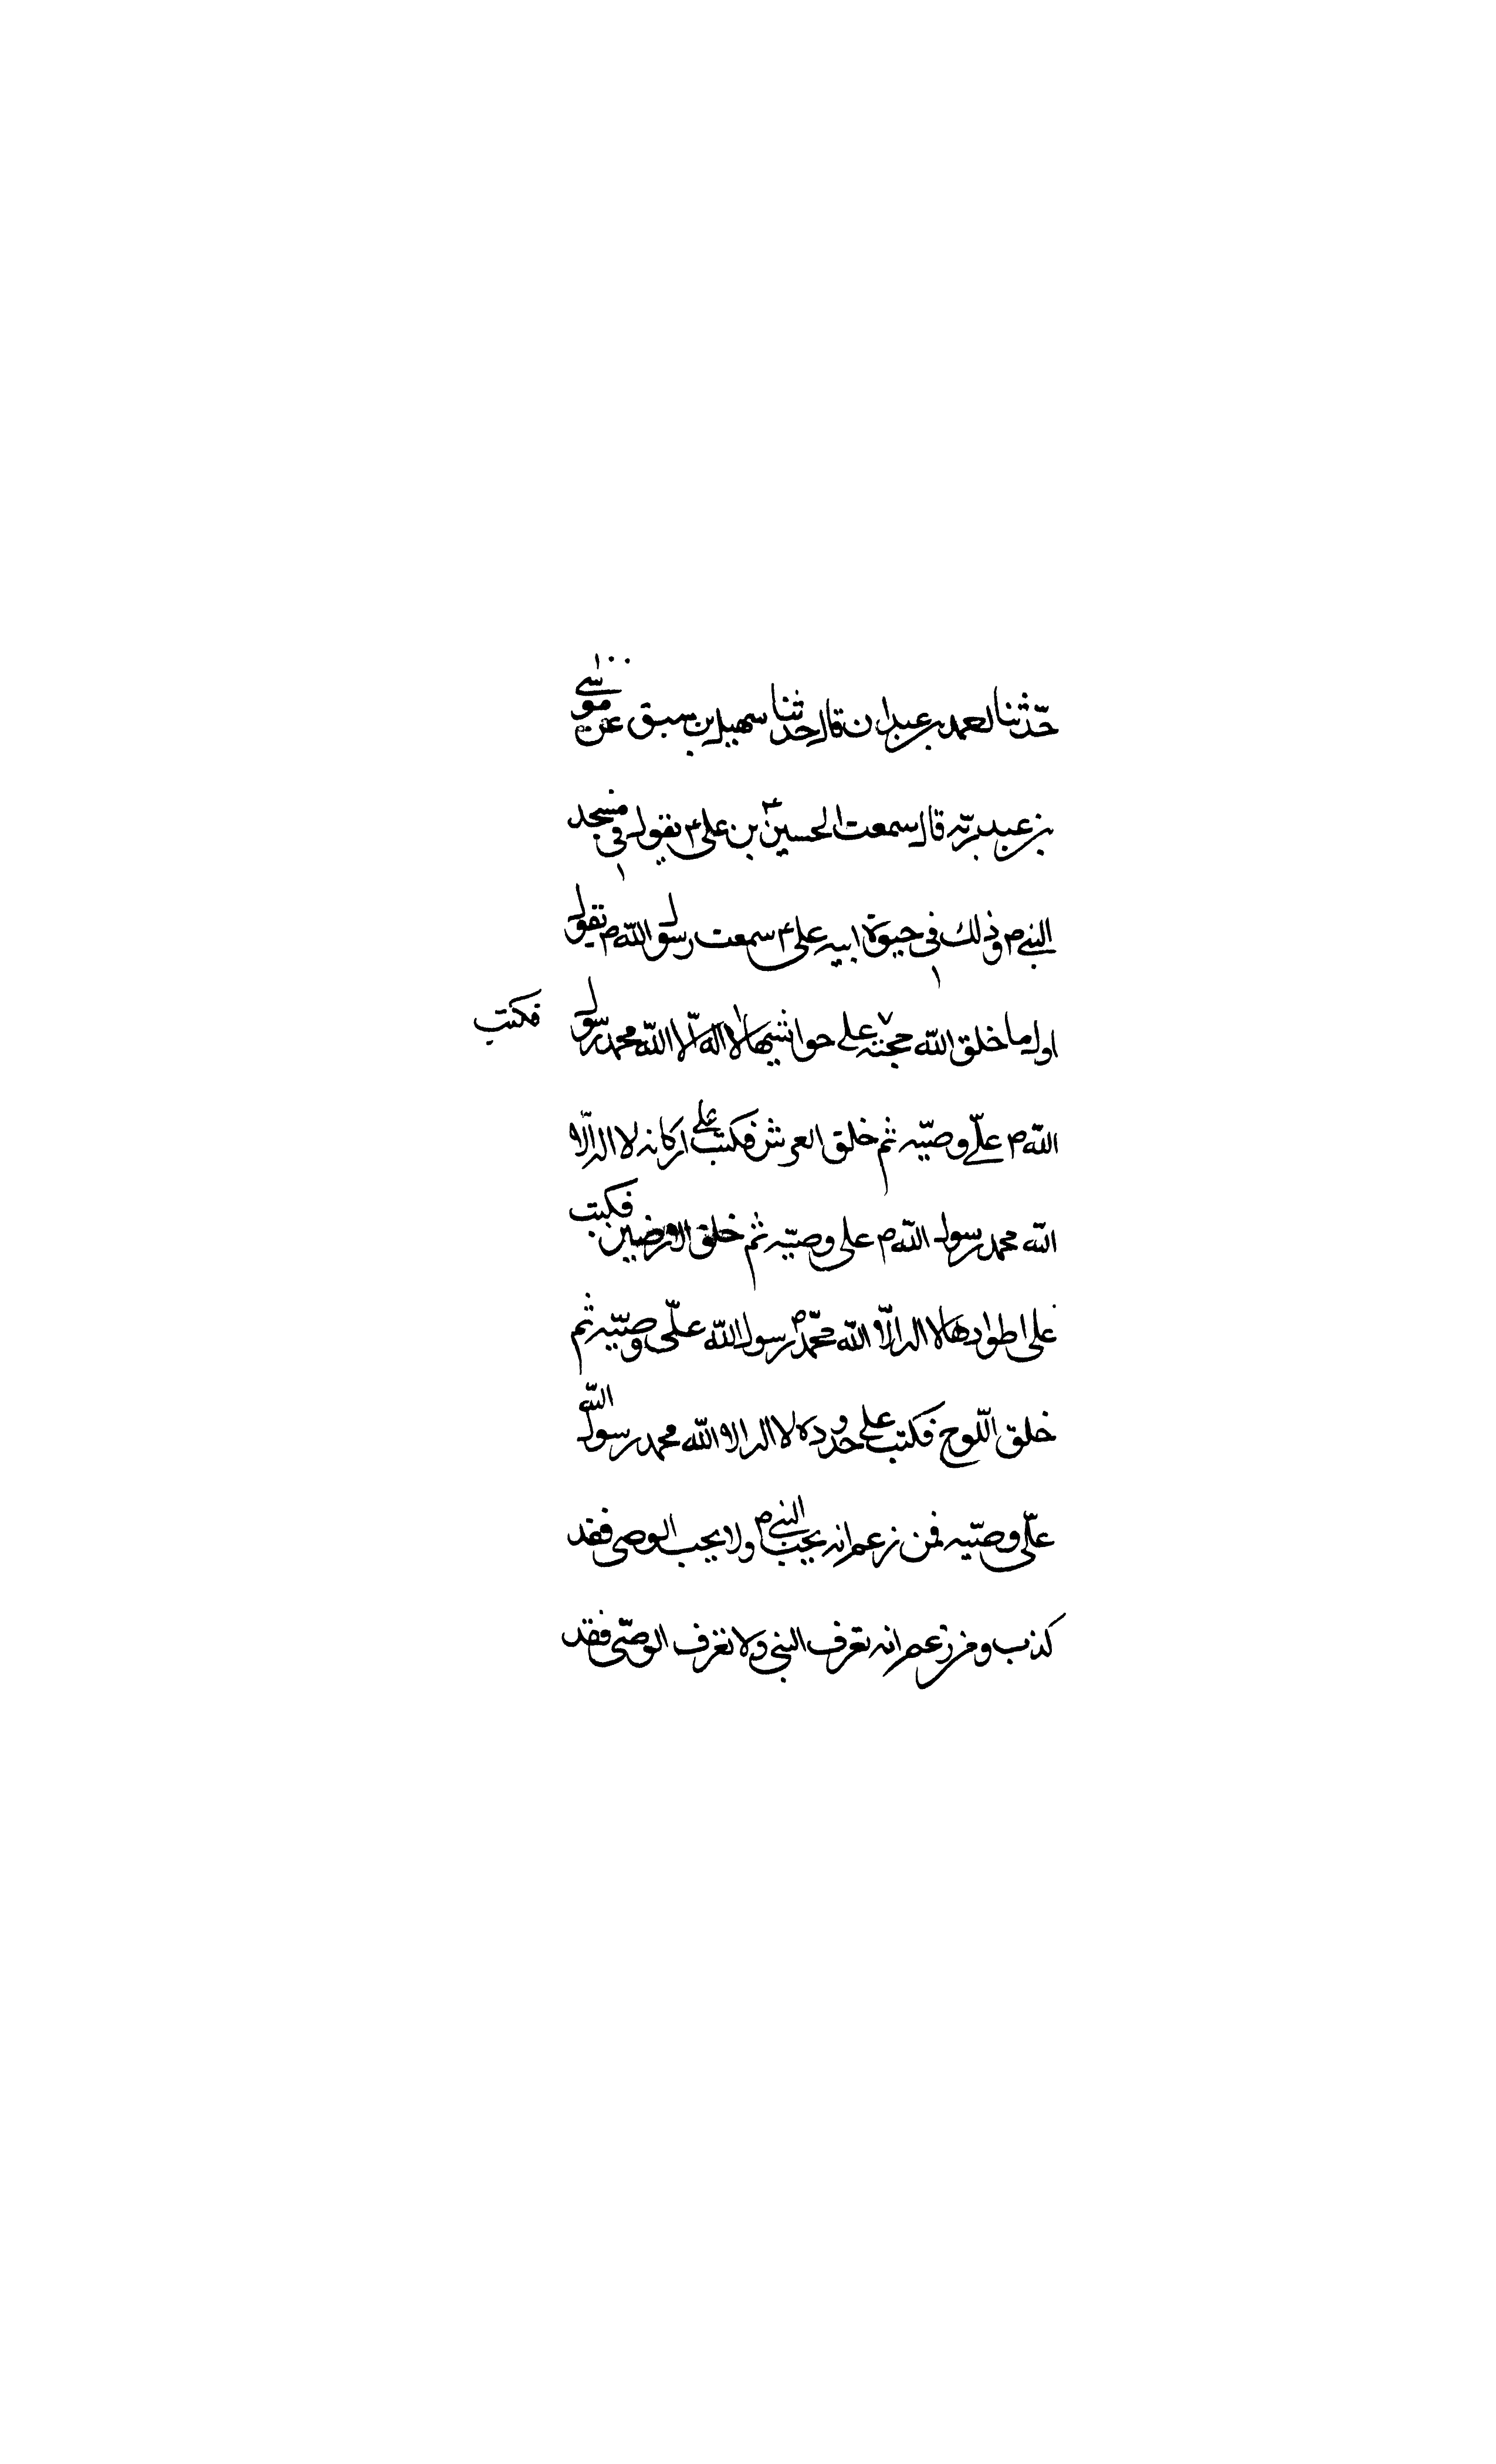 حدّثنا احمد بن عبدان قال حدثنا سهيل بن سبق عن موسى
بن عبد ربّه قال سمعت الحسين ع بن على ع يقول فى مسجد
النبى ص وذلك فى حيوة ابيه على ع سمعت رسول الله ص يقول
اول ما خلق الله حجبه على حواشيها لا اله الّا الله محمد رسول
فكتب
الله ص علىّ وصيّه ثم خلق العرش فكتب على اركانه لا اله الّا
الله محمد رسول الله ص على وصيّه ثم خلق الارضين فكتب
على اطوادها لا اله الّا الله محمّد ص رسول الله علىّ وصيّه ثم
خلق اللّوح فكتب على حدوده لا اله الا الله محمد رسول الله
علىّ وصيّه فمن زعم انه يحب النبى ص ولا يحب الوصى فقد
كذب ومن زعم انه يعرف النبى ولا يعرف الوصىّ فقد